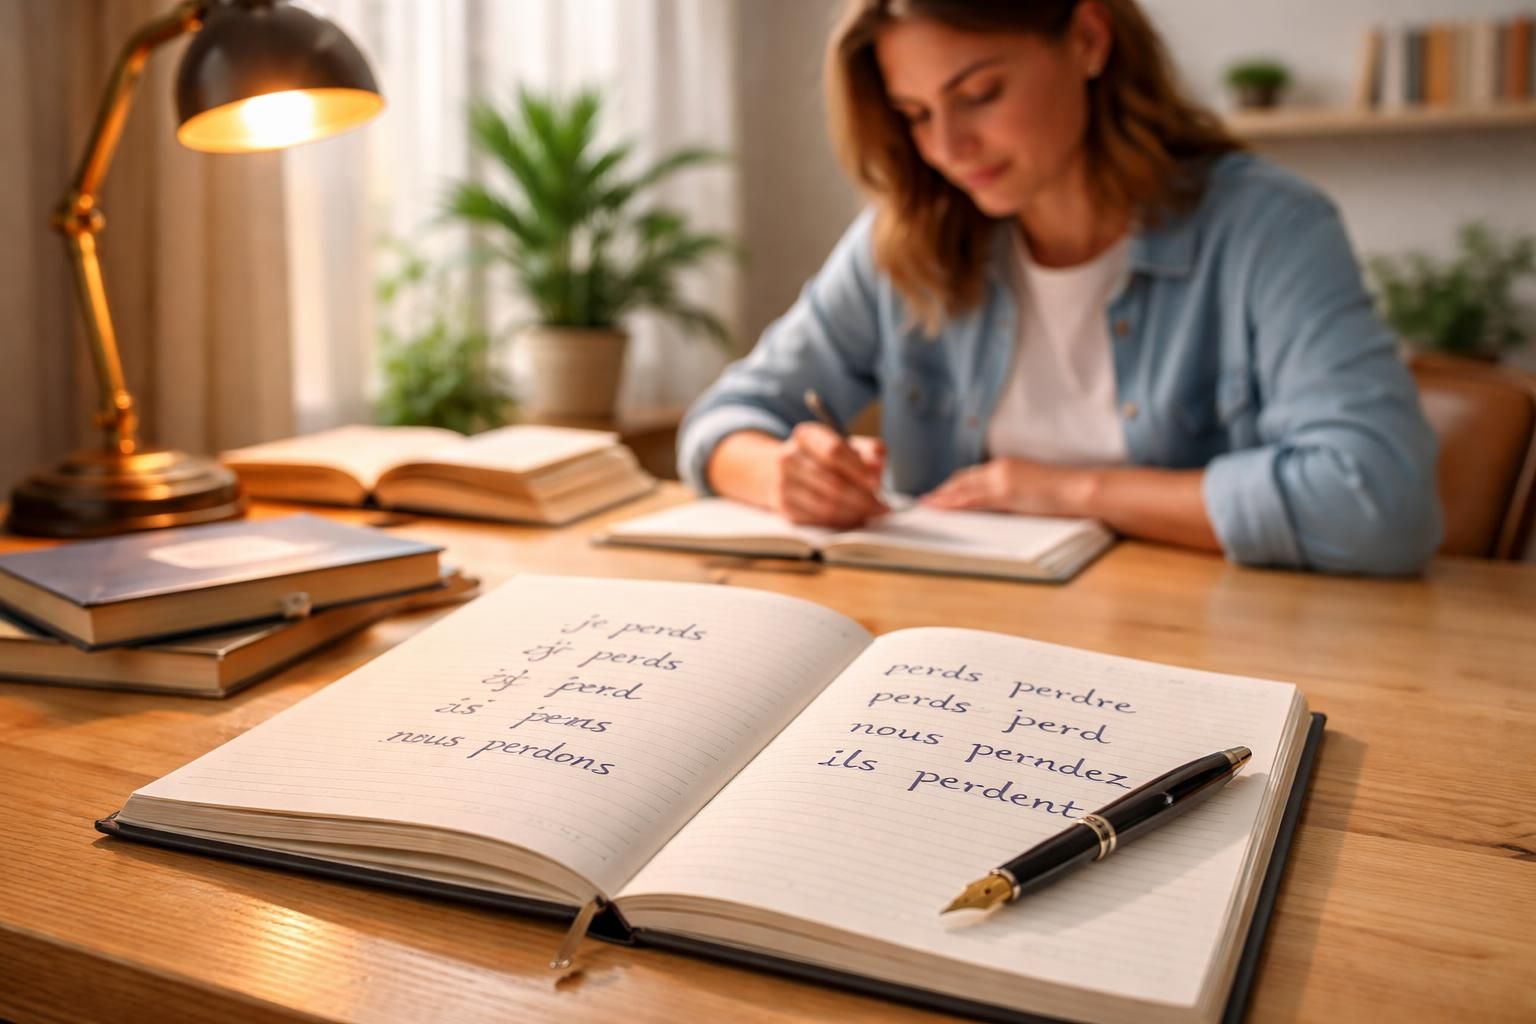 je perds
perds
perd
nous perdons
perds perdre
perds perd
nous perndez
ils perdent